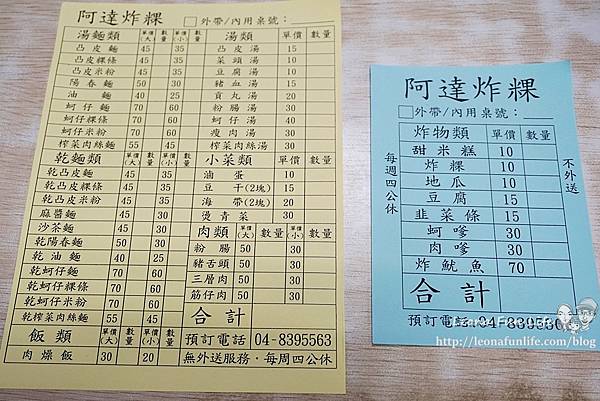 阿達炸粿
□外帶/內用桌號：
湯麵類 單價(大) 數量 單價(小) 數量 湯類 單價 數量
凸皮麵 45 35 凸皮湯 15
凸皮粿條 45 35 菜頭湯 10
凸皮米粉 45 35 豆腐湯 10
陽春麵 豬血湯 15
油麵 40 25 貢丸湯 20
蚵仔麵 70 60 粉腸湯 30
蚵仔粿條 70 60 蚵仔湯 40
蚵仔米粉 70 60 瘦肉湯 30
榨菜肉絲麵 55 45 榨菜肉絲湯 30
乾麵類 單價(大) 數量 單價(小) 數量 小菜類 單價 數量
乾凸皮麵 45 35 滷蛋 10
乾凸皮粿條 45 35 豆干(2塊) 15
乾凸皮米粉 45 35 海帶(2塊) 20
麻醬麵 45 燙青菜 30
沙茶麵 45 肉類 單價(大) 數量 單價(小) 數量
乾陽春麵 50 30 粉腸 50 30
乾油麵 50 30 豬舌頭 50 30
乾蚵仔麵 70 60 三層肉 50 30
乾蚵仔粿條 70 60 筋仔肉 50 30
乾蚵仔米粉 70 60 合計
乾榨菜肉絲麵 55 45
飯類 單價(大) 數量 單價(小) 數量 預訂電話 04-8395563
肉燥飯 30 20 無外送服務·每周四公休
阿達炸粿
□外帶/內用桌號：
炸物類 單價 數量
甜米糕 10
炸粿 10
地瓜 10
豆腐 15
韭菜條 15
蚵嗲 30
肉嗲 30
炸魷魚 70
合計
預訂電話 04-839556
每週四公休
不外送
http://leonafunlife.com/blog